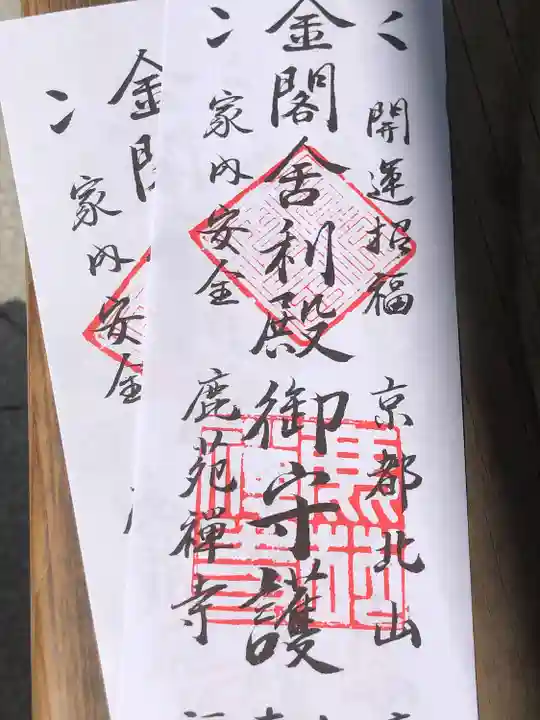 開運招福
京都北山
金閣舎利殿御守護
家内安全
鹿苑禅寺
金閣
家内安全